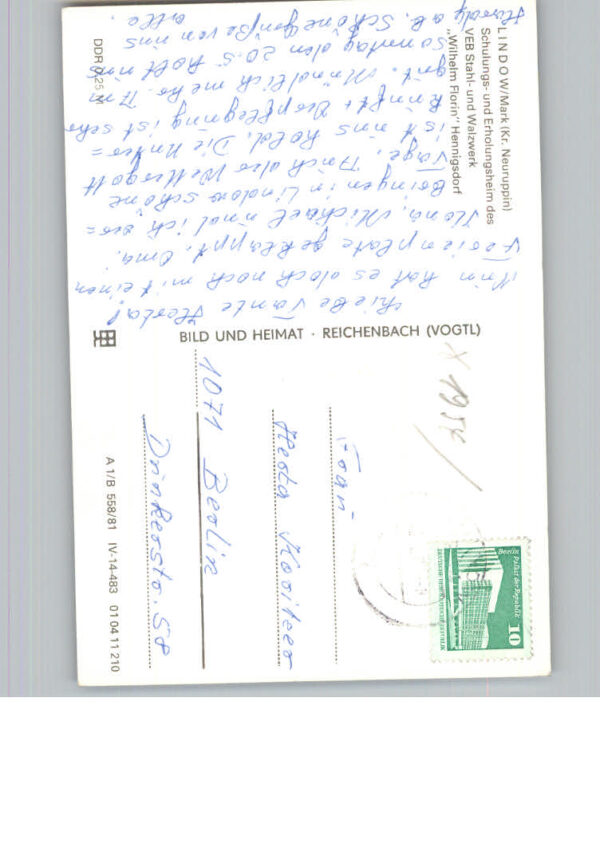 LINDOW/Mark (Kr. Neuruppin)
Schulungs- und Erholungsheim des
VEB Stahl- und Walzwerk
„Wilhelm Florin" Hennigsdorf
Liebe Tante Herta!
Nun hat es doch noch mit einem
Ferienplatz geklappt. Oma,
Ilona, Michael und ich ver=
bringen in Lindow schöne
Tage. Auch der Wettergott
ist uns hold. Die Unter=
kunft + Verpflegung ist sehr
gut. Mündlich mehr. Am
Sonntag den 20.5. holt uns
Hardy ab. Schöne Grüße von uns
alle.
DDR 0,25 M
BILD UND HEIMAT · REICHENBACH (VOGTL)
x 1954
Berlin, Palast der Republik
10
DEUTSCHE DEMOKRATISCHE REPUBLIK
Frau
Herta
1071 Berlin
Dunkerstr. 58
A 1/B 558/81 IV-14-483 01 04 11 210